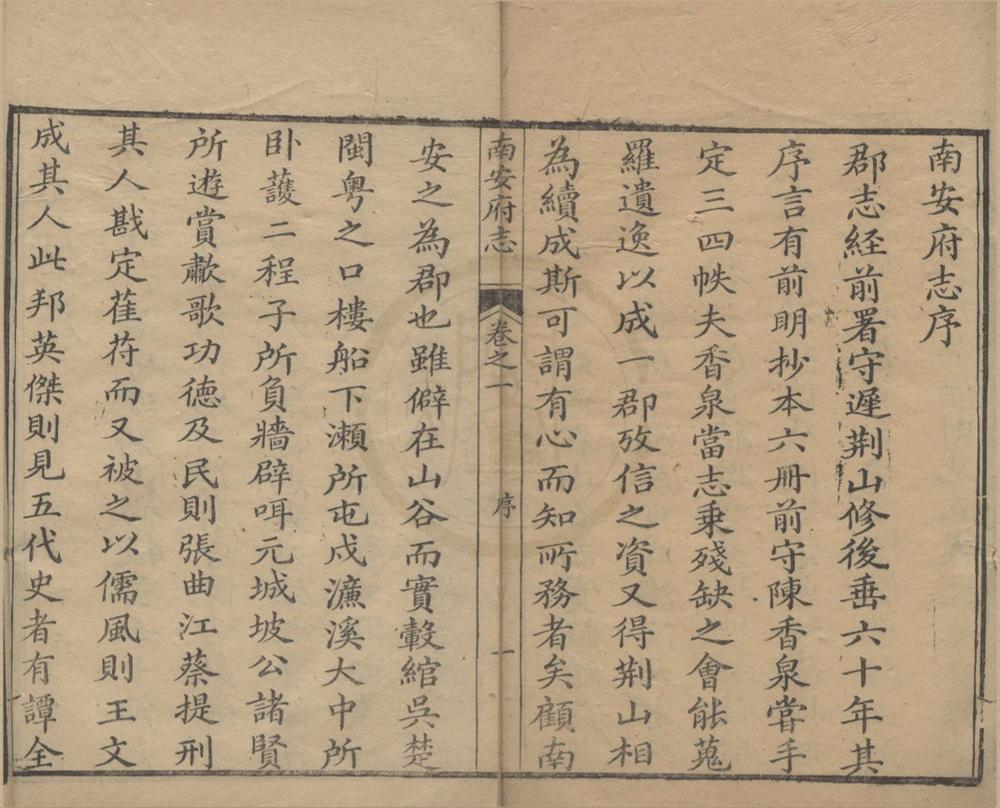 南安府志序
郡志經前署守遲荆山修後垂六十年其
序言有前明抄本六册前守陳香泉甞手
定三四帙夫香泉當志乗殘缺之會能蒐
羅遺逸以成一郡攷信之資又得荆山相
為續成斯可謂有心而知所務者矣顧南
南安府志 卷之一 序 一
安之為郡也雖僻在山谷而實轂綰吳楚
閩粤之口樓船下瀨所屯戍濂溪大中所
卧護二程子所負牆辟咡元城坡公諸賢
所遊賞歗歌功徳及民則張曲江蔡提刑
其人戡定萑苻而又被之以儒風則王文
成其人此邦英傑則見五代史者有譚全